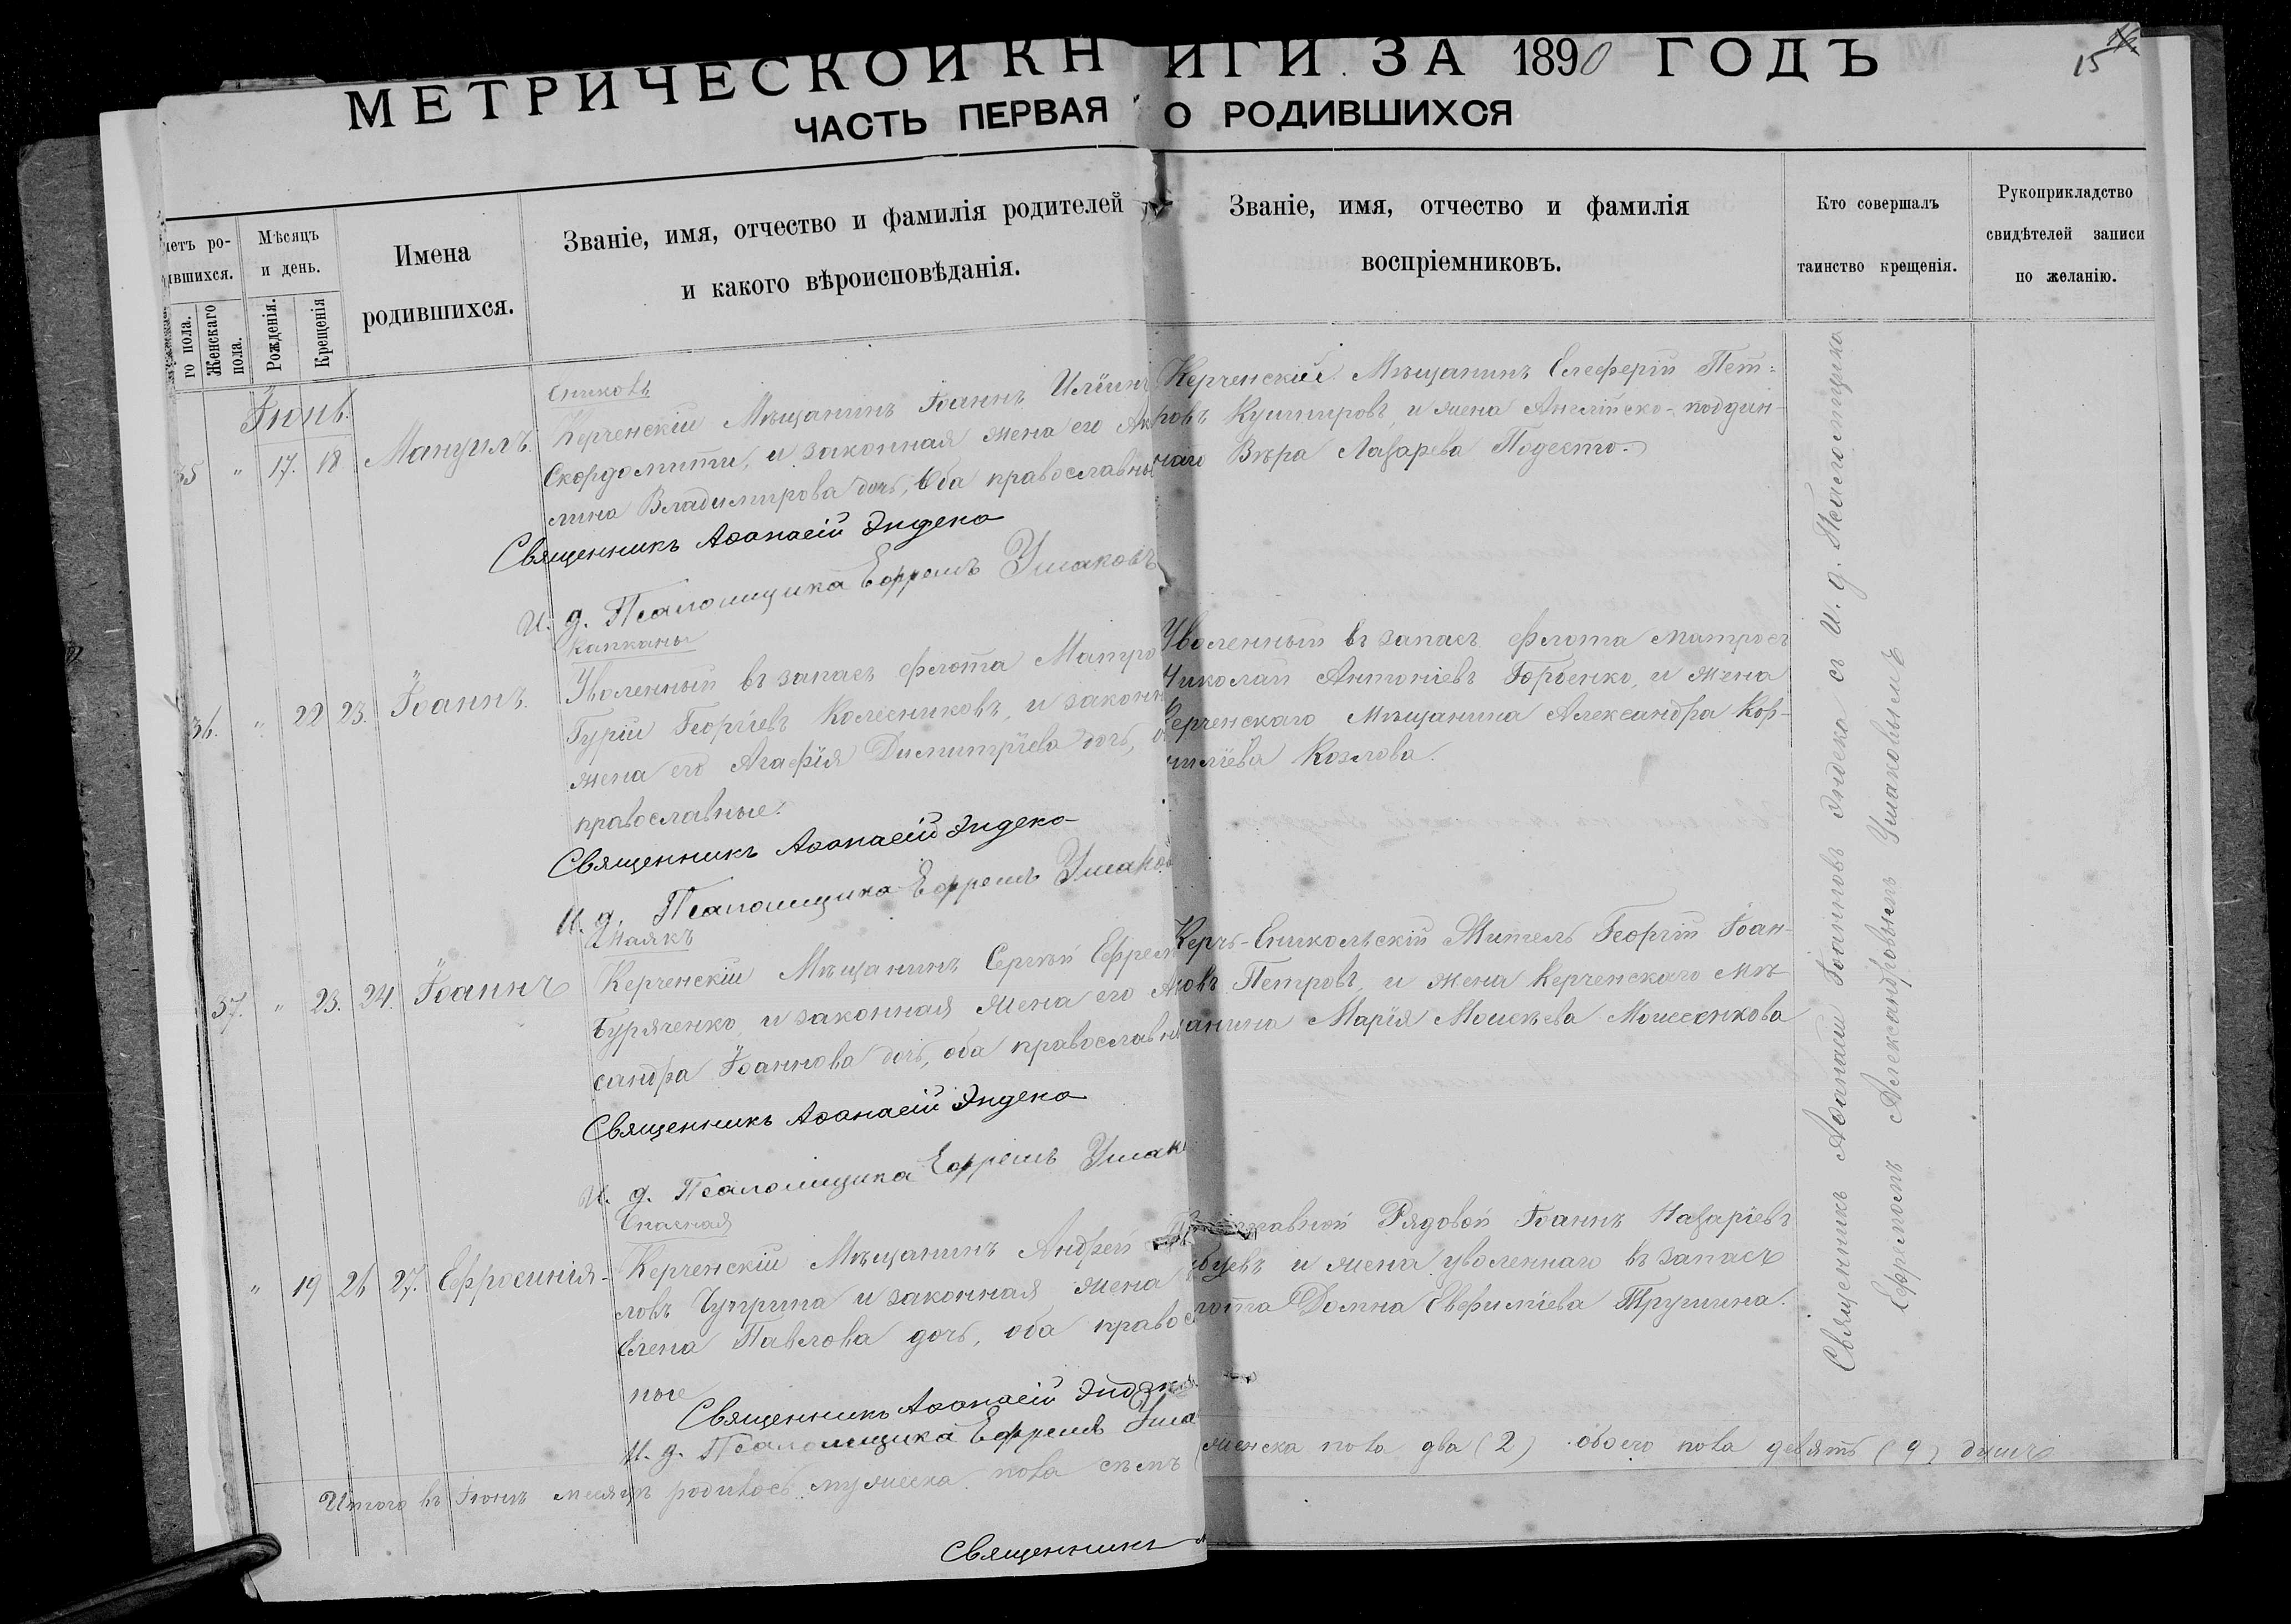 МЕТРИЧЕСКОЙ КНИГИ ЗА 1890 ГОДЪ
15
ЧАСТЬ ПЕРВАЯ О РОДИВШИХСЯ
четъ ро-
ившихся.
го пола.
Женскаго
пола.
Мѣсяцъ
и день.
Рожденія.
Крещенія
Имена
родившихся.
Званіе, имя, отчество и фамилія родителей
и какого вѣроисповѣданія.
Званіе, имя, отчество и фамилія
воспріемниковъ.
Кто совершалъ
таинство крещенія.
Рукоприкладство
свидѣтелей записи
по желанію.
Іюнь.
35 " 17. 18 Мануилъ.
Ениковъ
Керченскій Мѣщанинъ Іоаннъ Иліинъ
Скордомити, и законная жена его Ак
лина Владимирова дочь, Оба православны
Священникъ Аѳанасій Эндека
И. д. Псаломщика Ефремъ Ушаковъ
Керченскій Мѣщанинъ Елеферій Пет-
ровъ Кушнировъ, и жена Англійско-поддан-
наго Вѣра Лазарева Подесто.
36. " 22 23. Іоаннъ.
Капканы
Уволенный въ запасъ флота Матро
Гурій Георгіевъ Колесниковъ, и законн
жена его Агафія Димитріева дочь, о
православные.
Священникъ Аѳанасій Эндека
И. д. Псаломщика Ефремъ Ушаков
Уволенный въ запасъ флота матросъ
Николай Антоніевъ Горбенко, и жена
Керченскаго Мѣщанина Александра Кор-
ниліева Козлова.
37. " 23. 24. Іоаннъ
Маякъ
Керченскій Мѣщанинъ Сергѣй Ефрем
Буряченко, и законная жена его Ал
сандра Іоаннова дочь, оба православн
Священникъ Аѳанасій Эндека
И. д. Псаломщика Ефремъ Ушак
Керчь-Еникольскій Житель Георгій Іоан-
новъ Петровъ, и жена Керченскаго мѣ-
щанина Марія Моисеева Моисеенкова
" 19 26 27. Ефросинія
Опасная
Керченскій Мѣщанинъ Андрей
ловъ Чуприна и законная жена
Елена Павлова дочь, оба право
ные
Священникъ Аѳанасій Эндека
И. д. Псаломщика Ефремъ Уша
Рядовой Іоаннъ Назаріевъ
и жена уволеннаго въ запасъ
флота Домна Евфиміева Трушина.
Священникъ Аѳанасій Іоанновъ Эндека съ И. д. Псаломщика
Ефремомъ Александровымъ Ушаковымъ
Итого въ Іюнѣ месяцѣ родилось мужеска пола семь
женска пола два (2) обоего пола девять (9) душъ
Священникъ